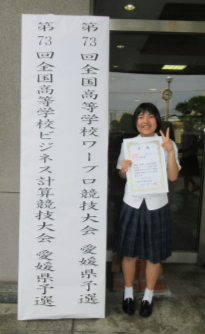 第73回全国高等学校ワープロ競技大会 愛媛県予選
第73回全国高等学校ビジネス計算競技大会 愛媛県予選